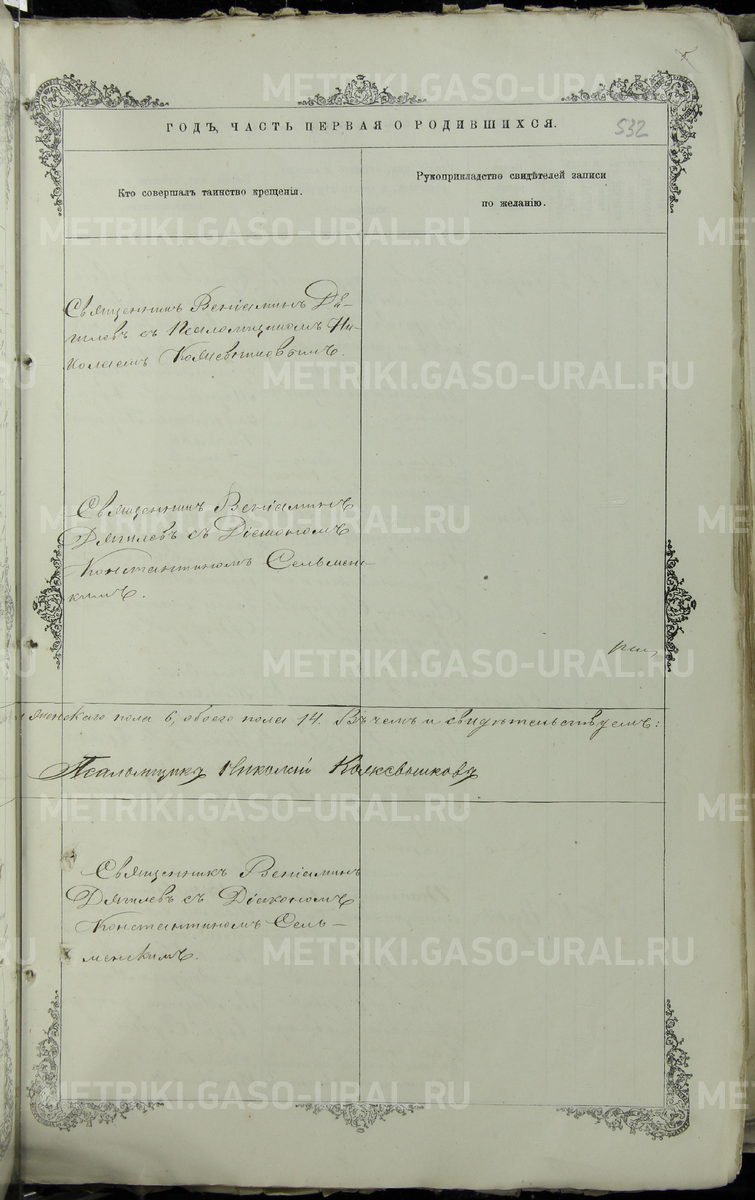 METRIKI.GASO-URAL.RU
ГОДЪ, ЧАСТЬ ПЕРВАЯ О РОДИВШИХСЯ.
532
Кто совершалъ таинство крещенія.
Рукоприкладство свидѣтелей записи
по желанію.
Священникъ Веніаминъ Дя-
гилевъ съ Псаломщикомъ Ни-
колаемъ
Священникъ Веніаминъ
Дягилевъ съ Діакономъ
Константиномъ Сельмен-
скимъ.
женскаго пола 6, обоего пола 14. Въ чемъ и свидѣтельствуемъ:
Псаломщикъ Николай
Священникъ Веніаминъ
Дягилевъ съ Діакономъ
Константиномъ Сель-
менскимъ.